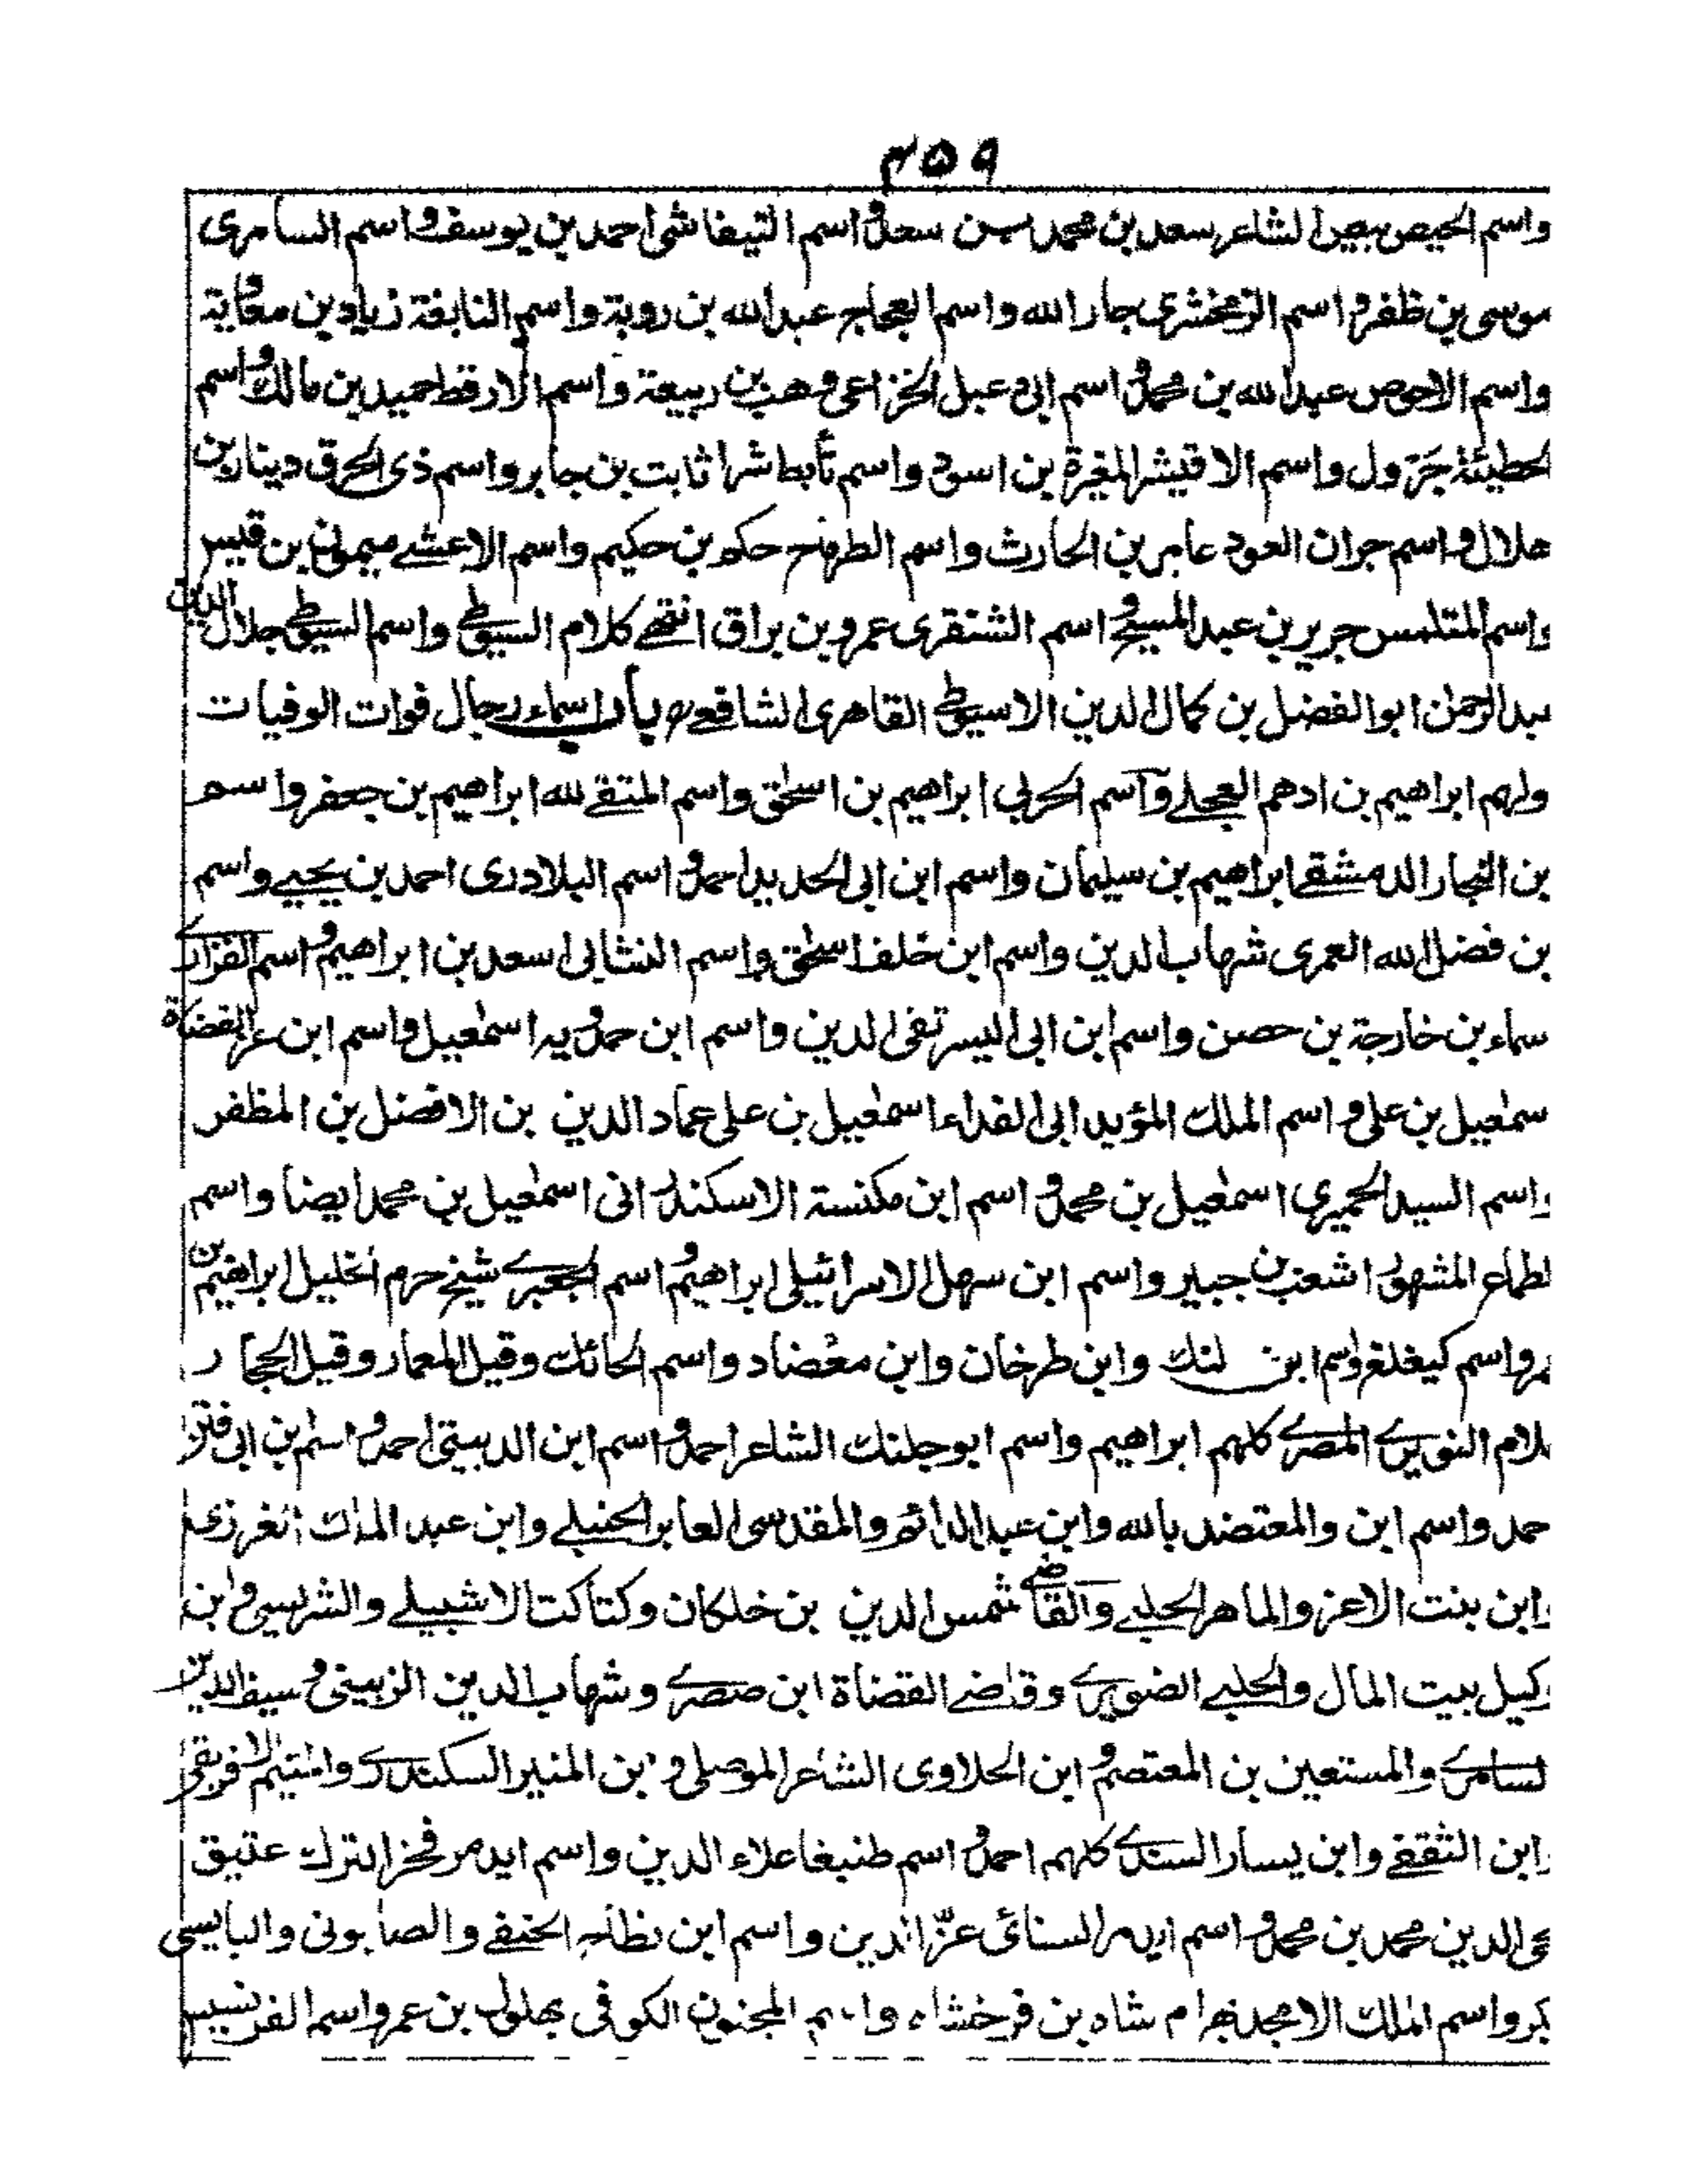 ۳۵۹
واسم الحيص بيص الشاعر سعد بن محمد بن سعد واسم التيفاشى احمد بن يوسف واسم السامرى
موسى بن ظفر واسم الزمخشرى جار الله واسم العجاج عبد الله بن روبة واسم النابغة زياد بن معاوية
واسم الاحوص عبد الله بن محمد واسم ابى عبل الخزاعى وهب بن ربيعة واسم الارقط حميد بن مالك واسم
لحطيئة جَرول واسم الاقيشر المغيرة بن اسود واسم تأبط شرا ثابت بن جابر واسم ذى الخرق دينار بن
هلال واسم جران العود عامر بن الحارث واسم الطرماح حكم بن حكيم واسم الاعشے ميمون بن قيس
واسم المتلمس جرير بن عبد المسيح واسم الشنقرى عمرو بن براق انتهے كلام السيوطے واسم السيوطے جلال الدين
عبد الرحمٰن ابو الفضل بن كمال الدين الاسيوطے القاهرى الشافعے باب اسماء رجال فوات الوفيات
ولهم ابراهيم بن ادهم العجلے واسم الحربي ابراهيم بن اسحٰق واسم المتقے لله ابراهيم بن جعفر واسم
بن النجار الدمشقے ابراهيم بن سليمان واسم ابن ابى الحديد احمد واسم البلاذرى احمد بن يحيے واسم
بن فضل الله العمرى شهاب الدين واسم ابن خلف اسحٰق واسم النشابى اسعد بن ابراهيم واسم الفزارے
سماء بن خارجة بن حصن واسم ابن ابى اليسر تقى الدين واسم ابن حمدويه اسمٰعيل واسم ابن عز القضاة
سمٰعيل بن على واسم الملك المؤيد ابى الفداء اسمٰعيل بن على عماد الدين بن الافضل بن المظفر
واسم السيد الحميري اسمٰعيل بن محمد واسم ابن مكنسة الاسكندرانى اسمٰعيل بن محمد ايضا واسم
لطماع المشهور اشعب بن جبير واسم ابن سهل الاسرائيلى ابراهيم واسم الجعبرے شيخ حرم الخليل ابراهيم بن
عمر واسم كيغلغ واسم ابن لنك وابن طرخان وابن معضاد واسم الحائك وقيل المعمار وقيل الحجار
غلام النويرے المصرے كلهم ابراهيم واسم ابو جلنك الشاعر احمد واسم ابن الدبيثى احمد واسم بن ابى فنن
حمد واسم ابن والمعتضد بالله وابن عبد الدائم والمقدسى العابر الحنبلے وابن عبد الملك
وابن بنت الاعز والماهر الحلبے والقاضے شمس الدين بن خلكان وكتاكت الاشبيلے والشريسى وابن
وكيل بيت المال والحلبے الضويرے وقاضے القضاة ابن صصرے وشهاب الدين الزبينى وسيف الدين
لسامرے والمستعين بن المعتصم وابن الحلاوى الشاعر الموصلى وابن المنير السكندرے والمتيم الافريقى
وابن الثقفے وابن يسار السندے كلهم احمد واسم طنبغا علاء الدين واسم ايدمر فخر الترك عتيق
محى الدين محمد بن محمد واسم ايدمر السنائى عزّ الدين واسم ابن الحنفے والصابونى والبابيسى
بكر واسم الملك الامجد بهرام شاه بن فرخشاه واسم المجنون الكوفى بهلول بن عمر واسم الفرنسيس